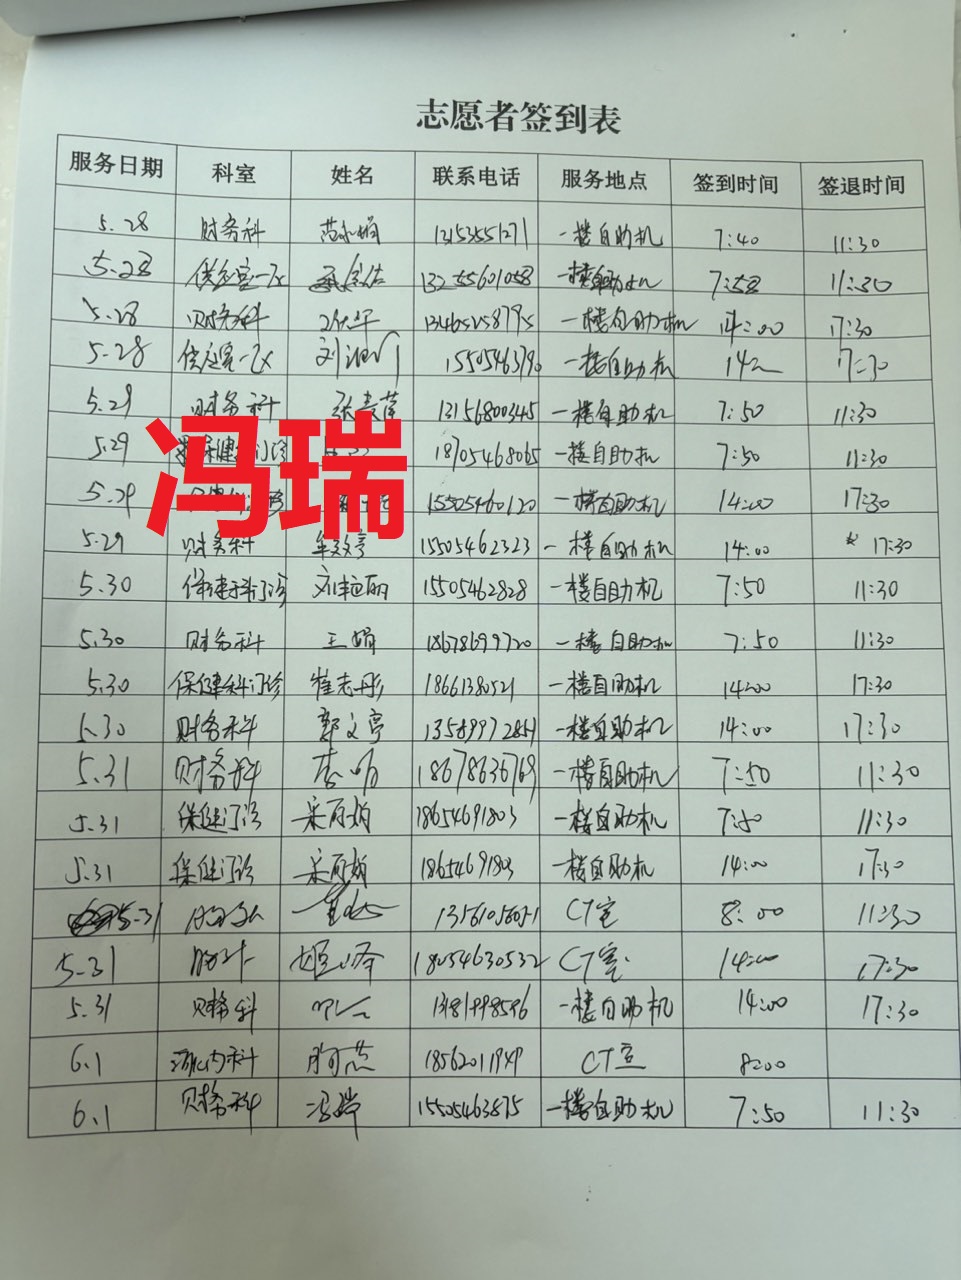 志愿者签到表
服务日期 科室 姓名 联系电话 服务地点 签到时间 签退时间
5.28 财务科 13153551271 一楼自助机 7:40 11:30
5.28 供应室 13255601058 一楼自助机 7:58 11:30
5.28 财务科 13465258795 一楼自助机 14:00 17:30
5.28 供应室 刘 1550546379 一楼自助机 14 17:30
5.29 财务科 张 13156800345 一楼自助机 7:50 11:30
5.29 门诊 18705468065 一楼自助机 7:50 11:30
5.29 15505460120 一楼自助机 14:00 17:30
冯瑞
5.29 财务科 15505462323 一楼自助机 14:00 17:30
5.30 保健科门诊 刘艳丽 15505462828 一楼自助机 7:50 11:30
5.30 财务科 王娟 18678699720 一楼自助机 7:50 11:30
5.30 保健科门诊 崔志彤 18661380521 一楼自助机 14:00 17:30
5.30 财务科 郭文亭 一楼自助机 14:00 17:30
5.31 财务科 李 18678636769 一楼自助机 7:50 11:30
5.31 保健门诊 18654691803 一楼自助机 7:50 11:30
5.31 保健门诊 18654691803 一楼自助机 14:00 17:30
5.31 CT室 8:00 11:30
5.31 18054630532 CT室 14:00 17:30
5.31 财务科 一楼自助机 14:00 17:30
6.1 内科 18562011949 CT室 8:00
6.1 财务科 冯瑞 15505463875 一楼自助机 7:50 11:30